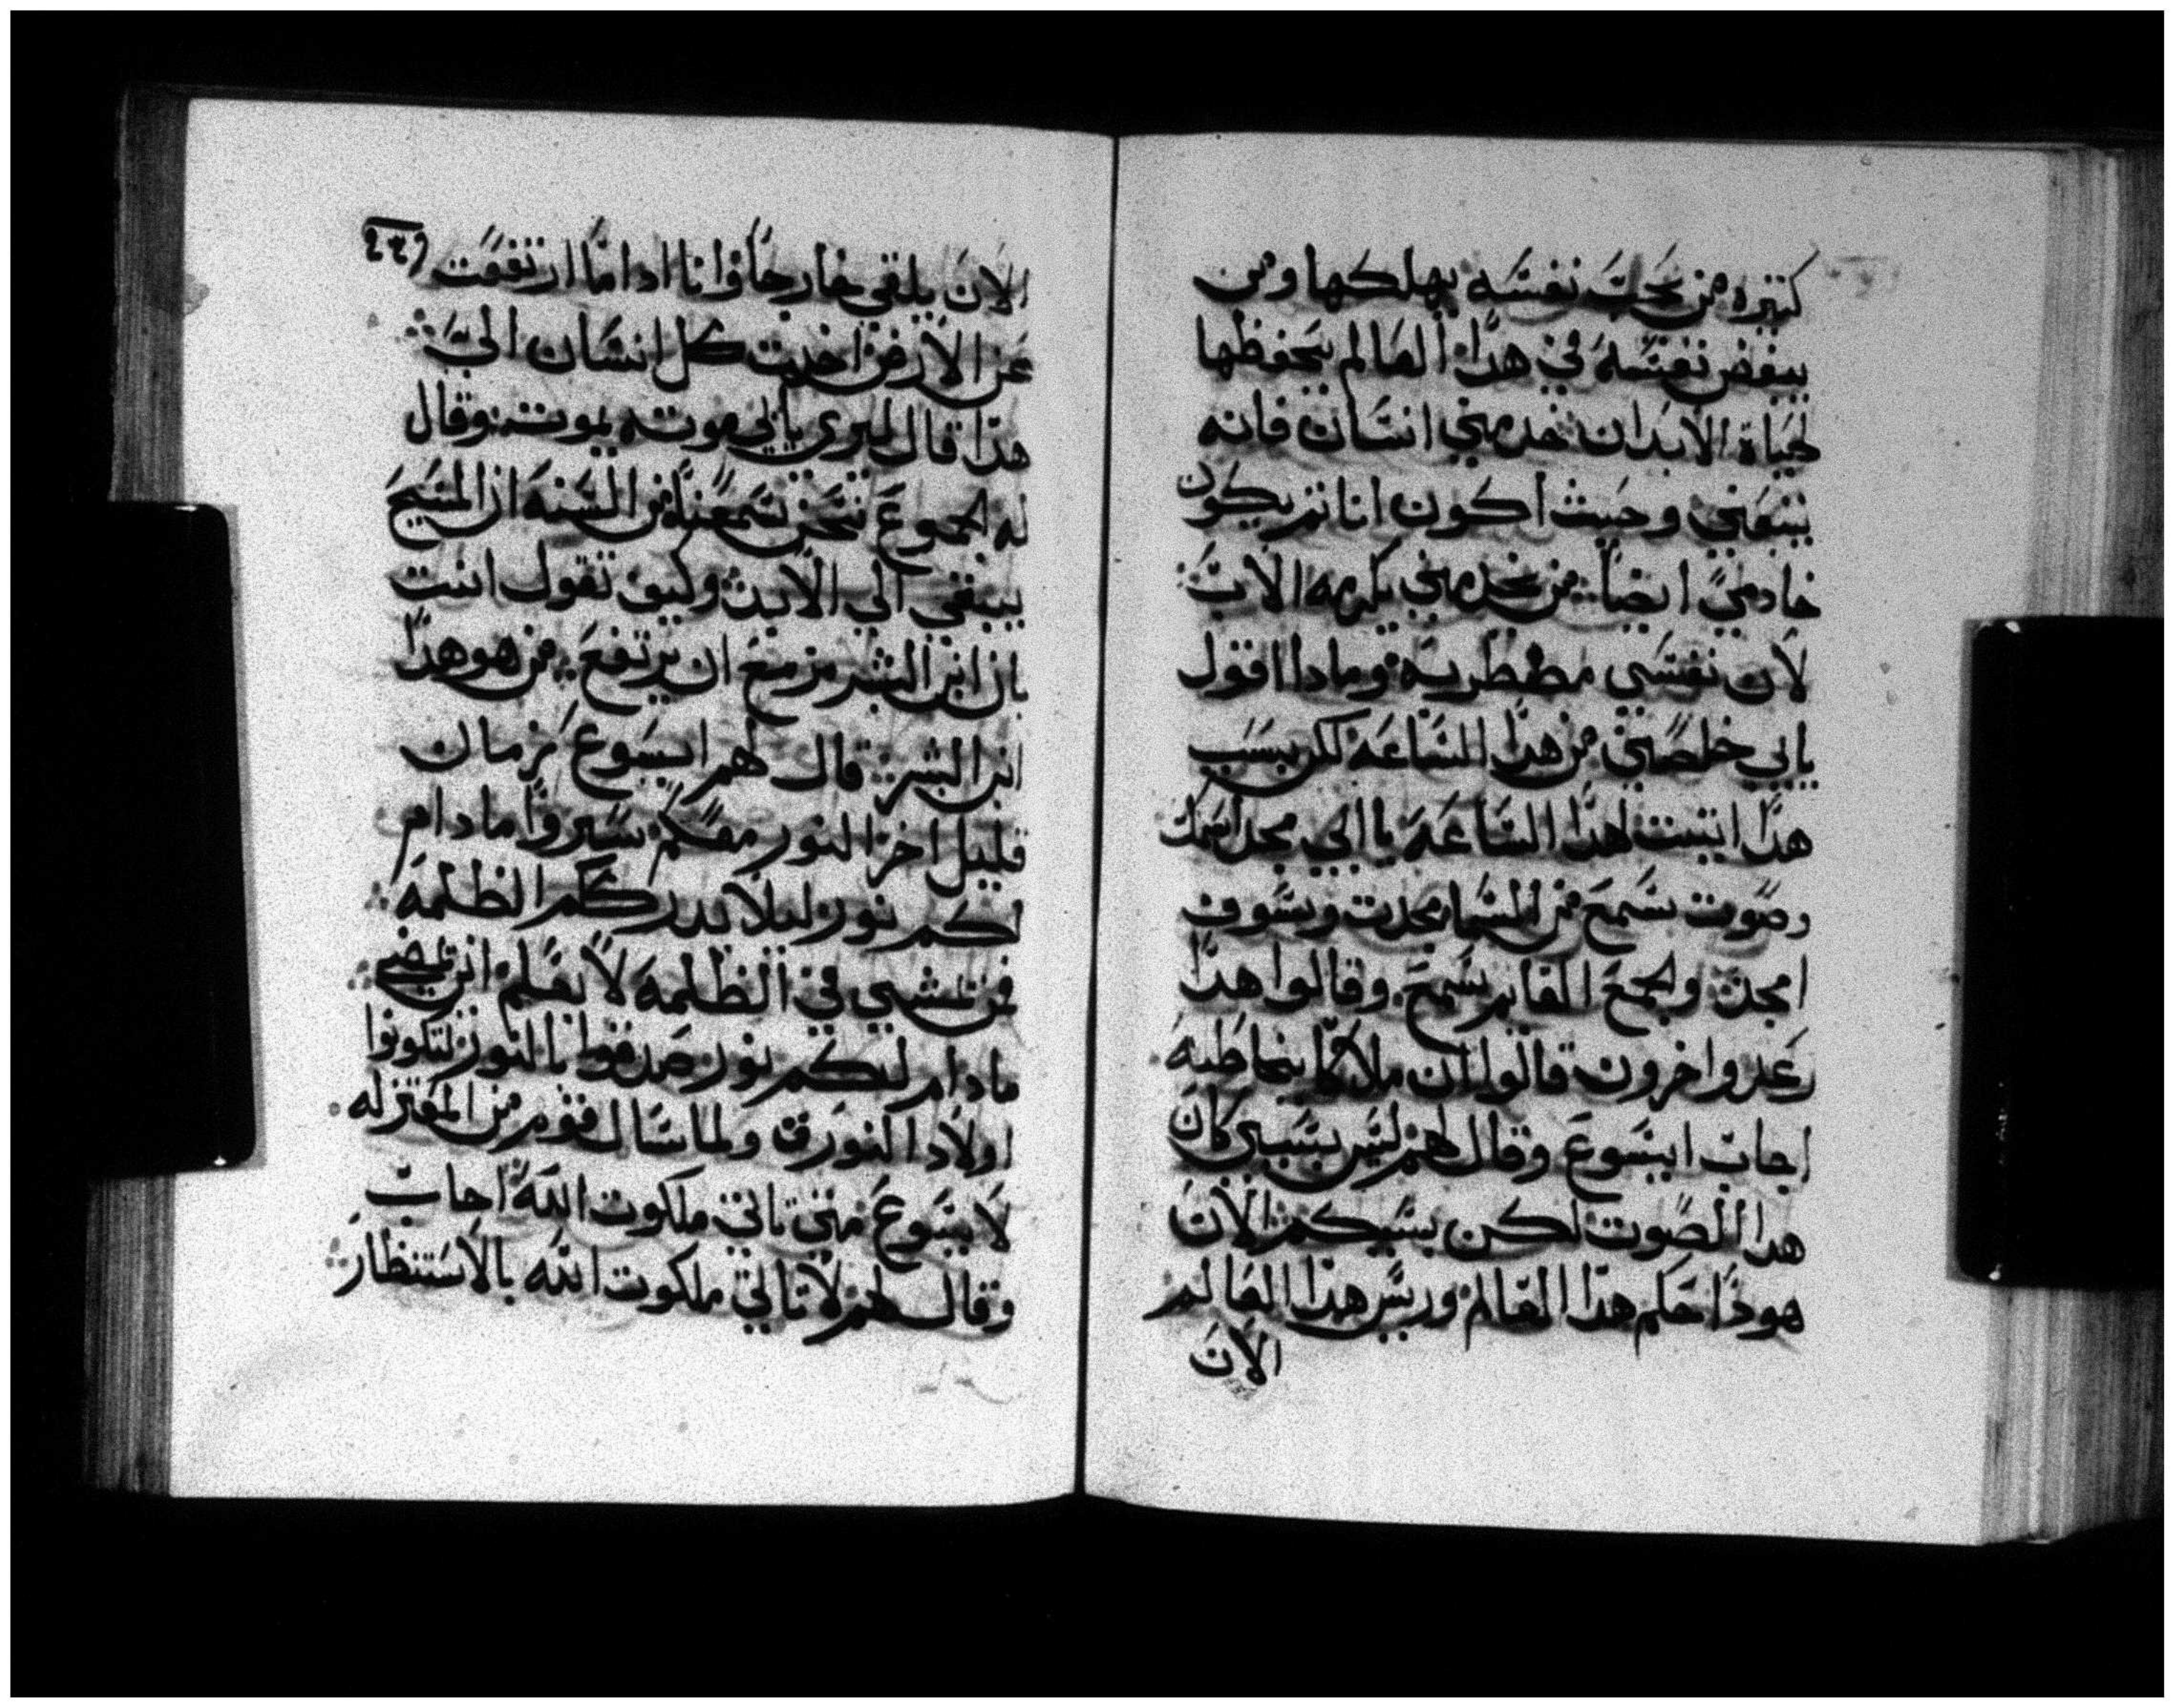 كتيره من يحب نفسه يهلكها ومن
يبغض نفسه في هدا العالم يحفظها
لحياة الابد ان خدمني انسان فانه
يتبعني وحيث اكون انا تم يكون
خادمي ايضاً من يخدمني يكرمه الاب
لان نفسي مضطربه ومادا اقول
يابي خلصني من هدا الساعه لكن بسبب
هدا اتيت لهدا الساعة يا ابي مجد اسمك
وصوت سمع من السما مجدت وسوف
امجد والجمع القايم سمع وقالوا هدا
رعد واخرون قالوا ان ملاكا يخاطبه
اجاب ايسوع وقال لهم ليس بسببي كان
هدا الصوت لكن بسببكم الان
هودا حكم هدا العالم وريس هدا العالم
الان
الان يلقي خارجاً وانا ادا ما ارتفعت
عن الارض اخدت كل انسان الي
هدا قال ليري باي موته يموت وقال
له الجموع نحن سمعنا من السنه ان المسيح
يبقي الي الابد وكيف تقول انت
بان ابن البشر مزمع ان يرتفع من هو هدا
ابن البشر قال لهم ايسوع زمان
قليل اخر النور معكم سيروا ما دام
لكم نور ليلا يدرككم الظلمه
فمن يمشي في الظلمه لا يعلم اين يمضي
ما دام لكم نور صدقوا بالنور لتكونوا
اولاد النور ولما سال قوم من المعتزله
لايسوع متي تاتي ملكوت الله اجاب
وقال لهم لا تاتي ملكوت الله بالاستنظار